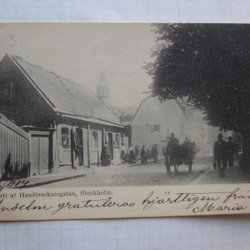 ti ul Handtverkaregatan, Stockholm.
nselm gratuleras hjärtligen från
Maria